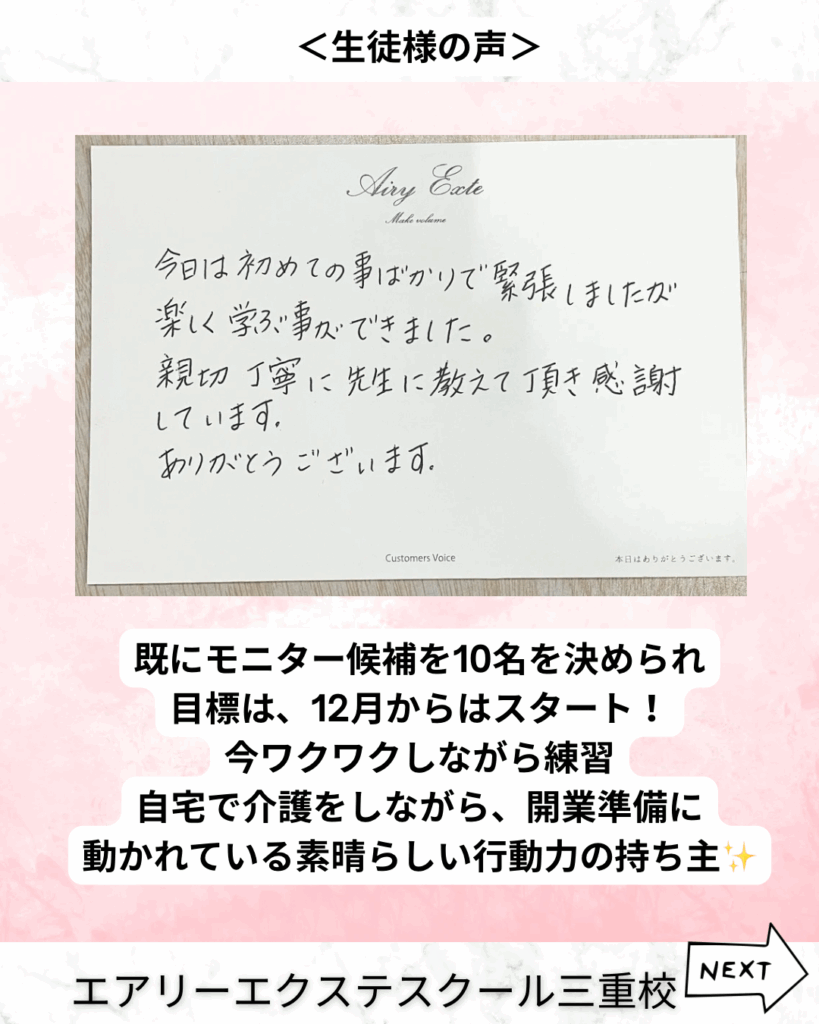 ＜生徒様の声＞
Airy Exte
Make volume
今日は初めての事ばかりで緊張しましたが
楽しく学ぶ事ができました。
親切丁寧に先生に教えて頂き感謝
しています.
ありがとうございます.
Customers Voice
本日はありがとうございます。
既にモニター候補を10名を決められ
目標は、12月からはスタート！
今ワクワクしながら練習
自宅で介護をしながら、開業準備に
動かれている素晴らしい行動力の持ち主✨
エアリーエクステスクール三重校
NEXT